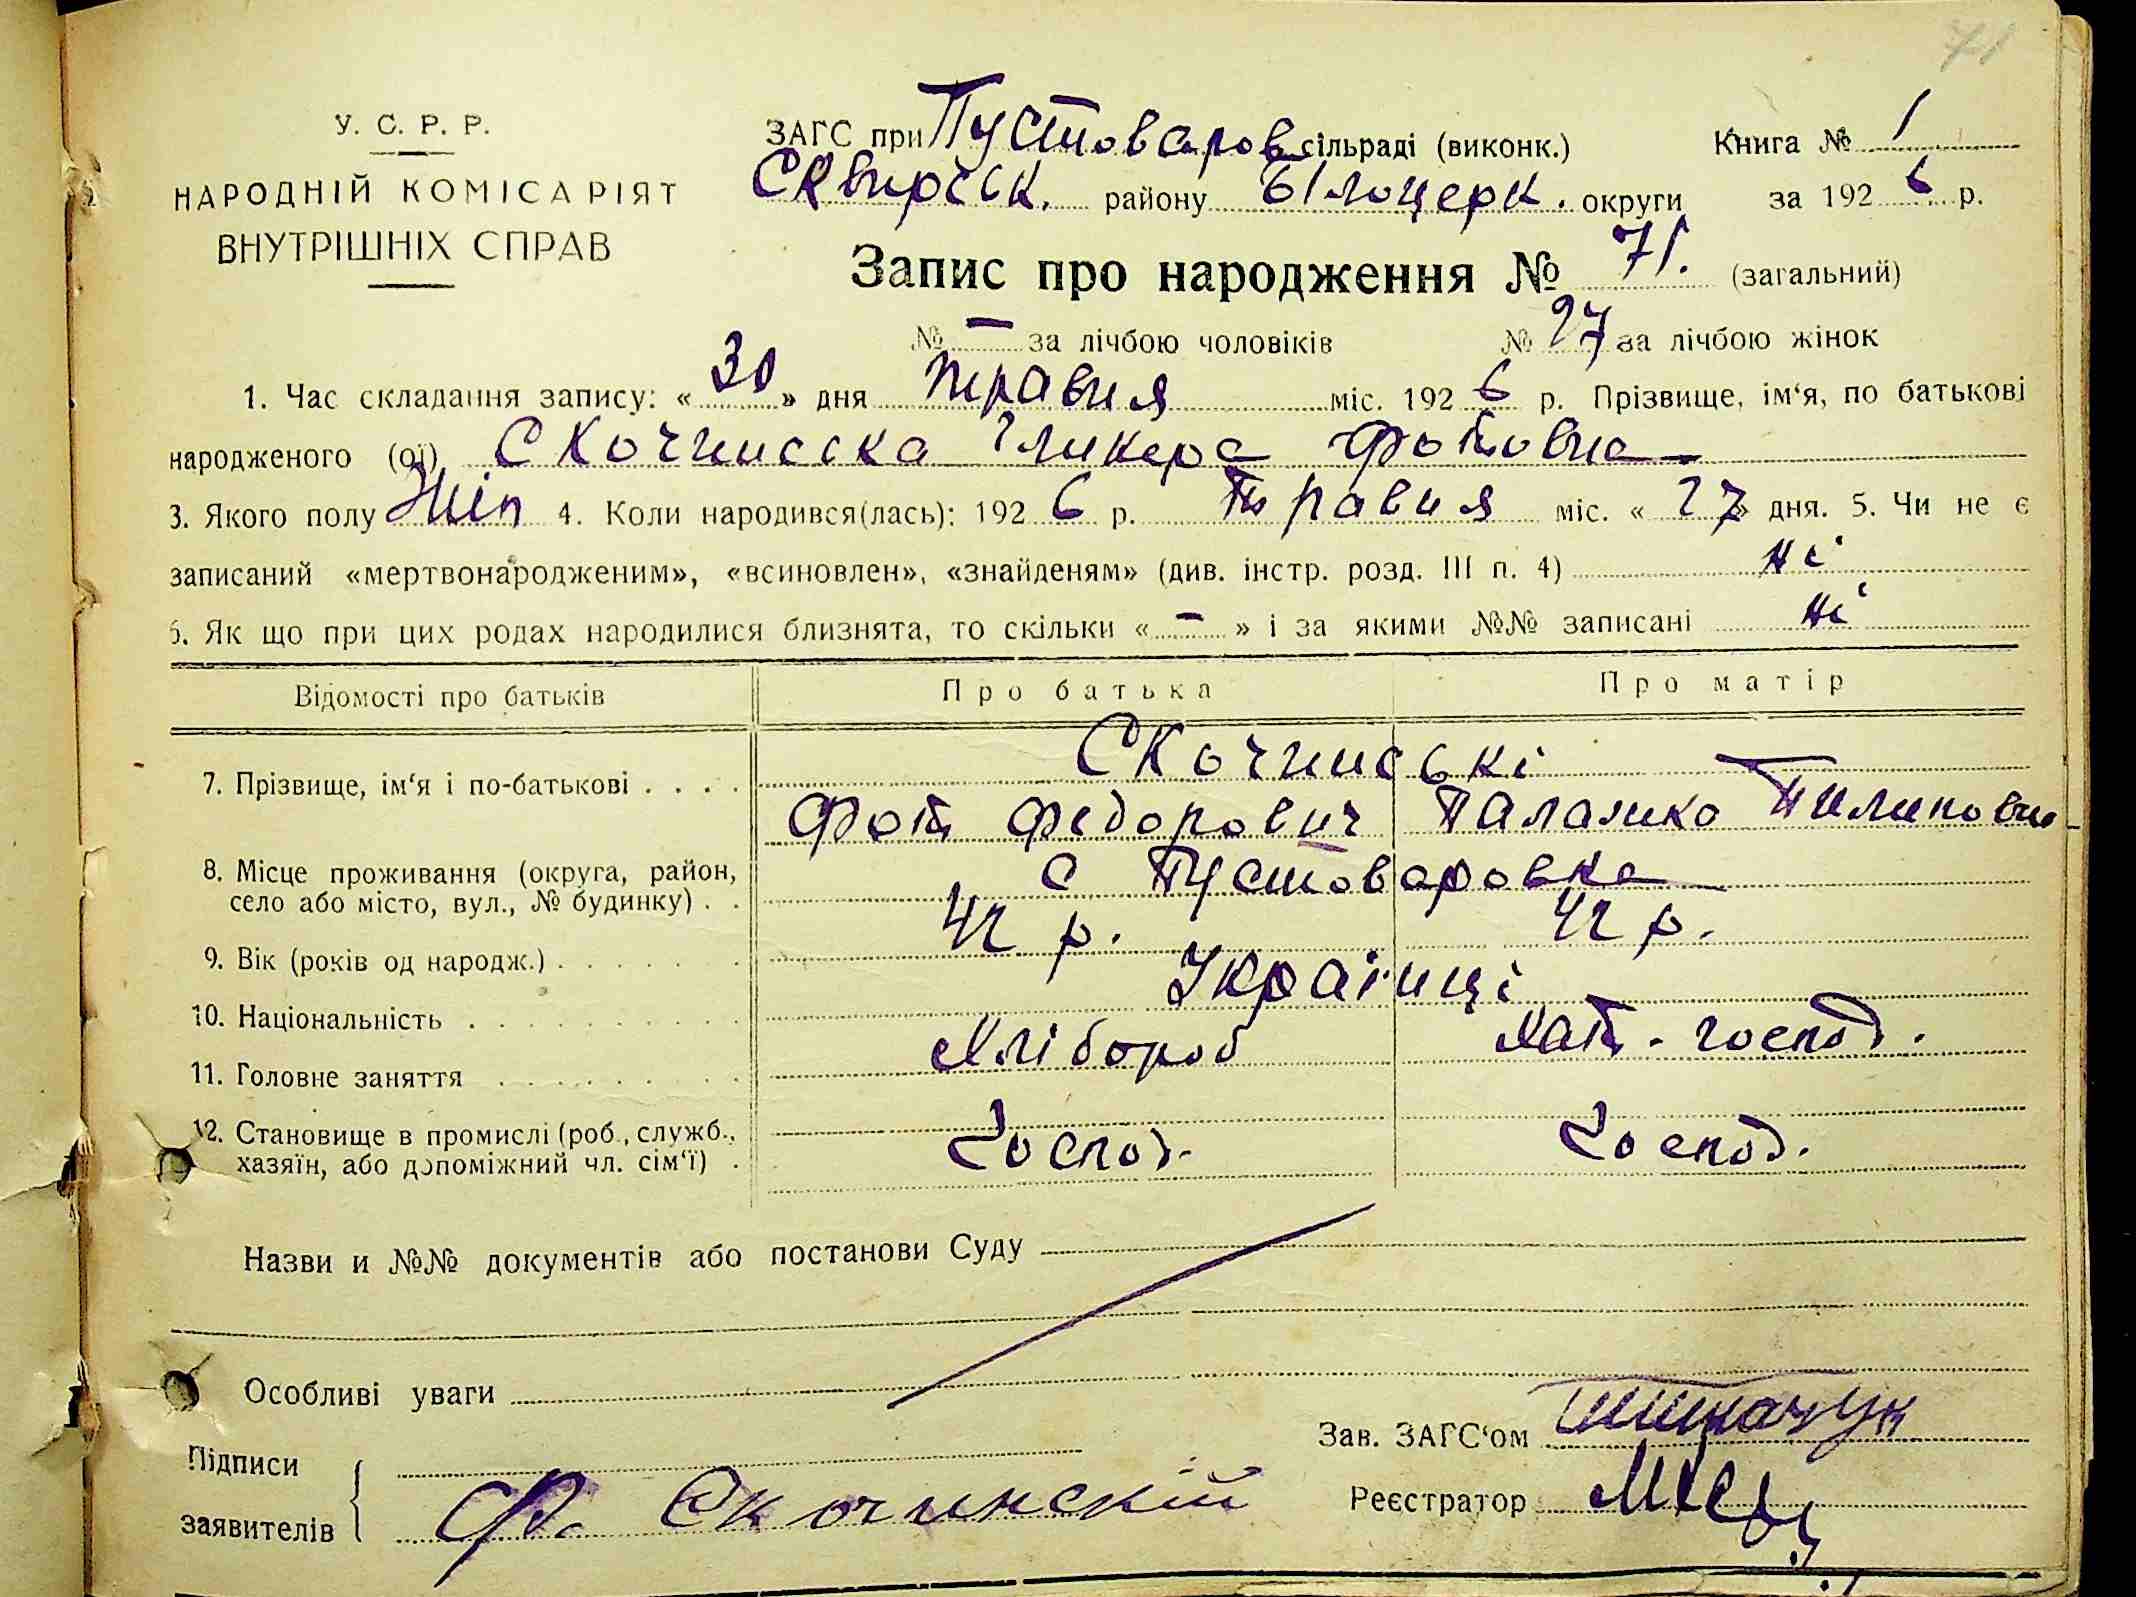 71
У. С. Р. Р.
НАРОДНІЙ КОМІСАРІЯТ
ВНУТРІШНІХ СПРАВ
ЗАГС при Пустоваров сільраді (виконк.) Книга № 1
Сквирськ. району Білоцерк. округи за 1926 р.
Запис про народження № 71. (загальний)
№ — за лічбою чоловіків № 27 за лічбою жінок
1. Час складання запису: « 30 » дня травня міс. 1926 р. Прізвище, ім‘я, по батькові
народженого (ої) Скочинсска Гликера Фотовна
3. Якого полу Жін 4. Коли народився(лась): 1926 р. Травня міс. « 27 » дня. 5. Чи не є
записаний «мертвонародженим», «всиновлен», «знайденям» (див. інстр. розд. III п. 4) ні
6. Як що при цих родах народилися близнята, то скільки « — » і за якими №№ записані ні
Відомості про батьків Про батька Про матір
7. Прізвище, ім‘я і по-батькові . . . . Скочинські
Фот Федорович Палажка Пилиповна
8. Місце проживання (округа, район,
село або місто, вул., № будинку) . . с Пустоваровка
9. Вік (років од народж.) . . . . . . . 42 р. 42 р.
10. Національність . . . . . . . . . . Українці
11. Головне заняття . . . . . . . . . Хлібороб Хат. господ.
12. Становище в промислі (роб., служб.,
хазяїн, або допоміжний чл. сім‘ї) . Госпот. Господ.
Назви и №№ документів або постанови Суду
Особливі уваги
Зав. ЗАГС‘ом
Підписи
заявителів Ф. Скочинскій
Реєстратор